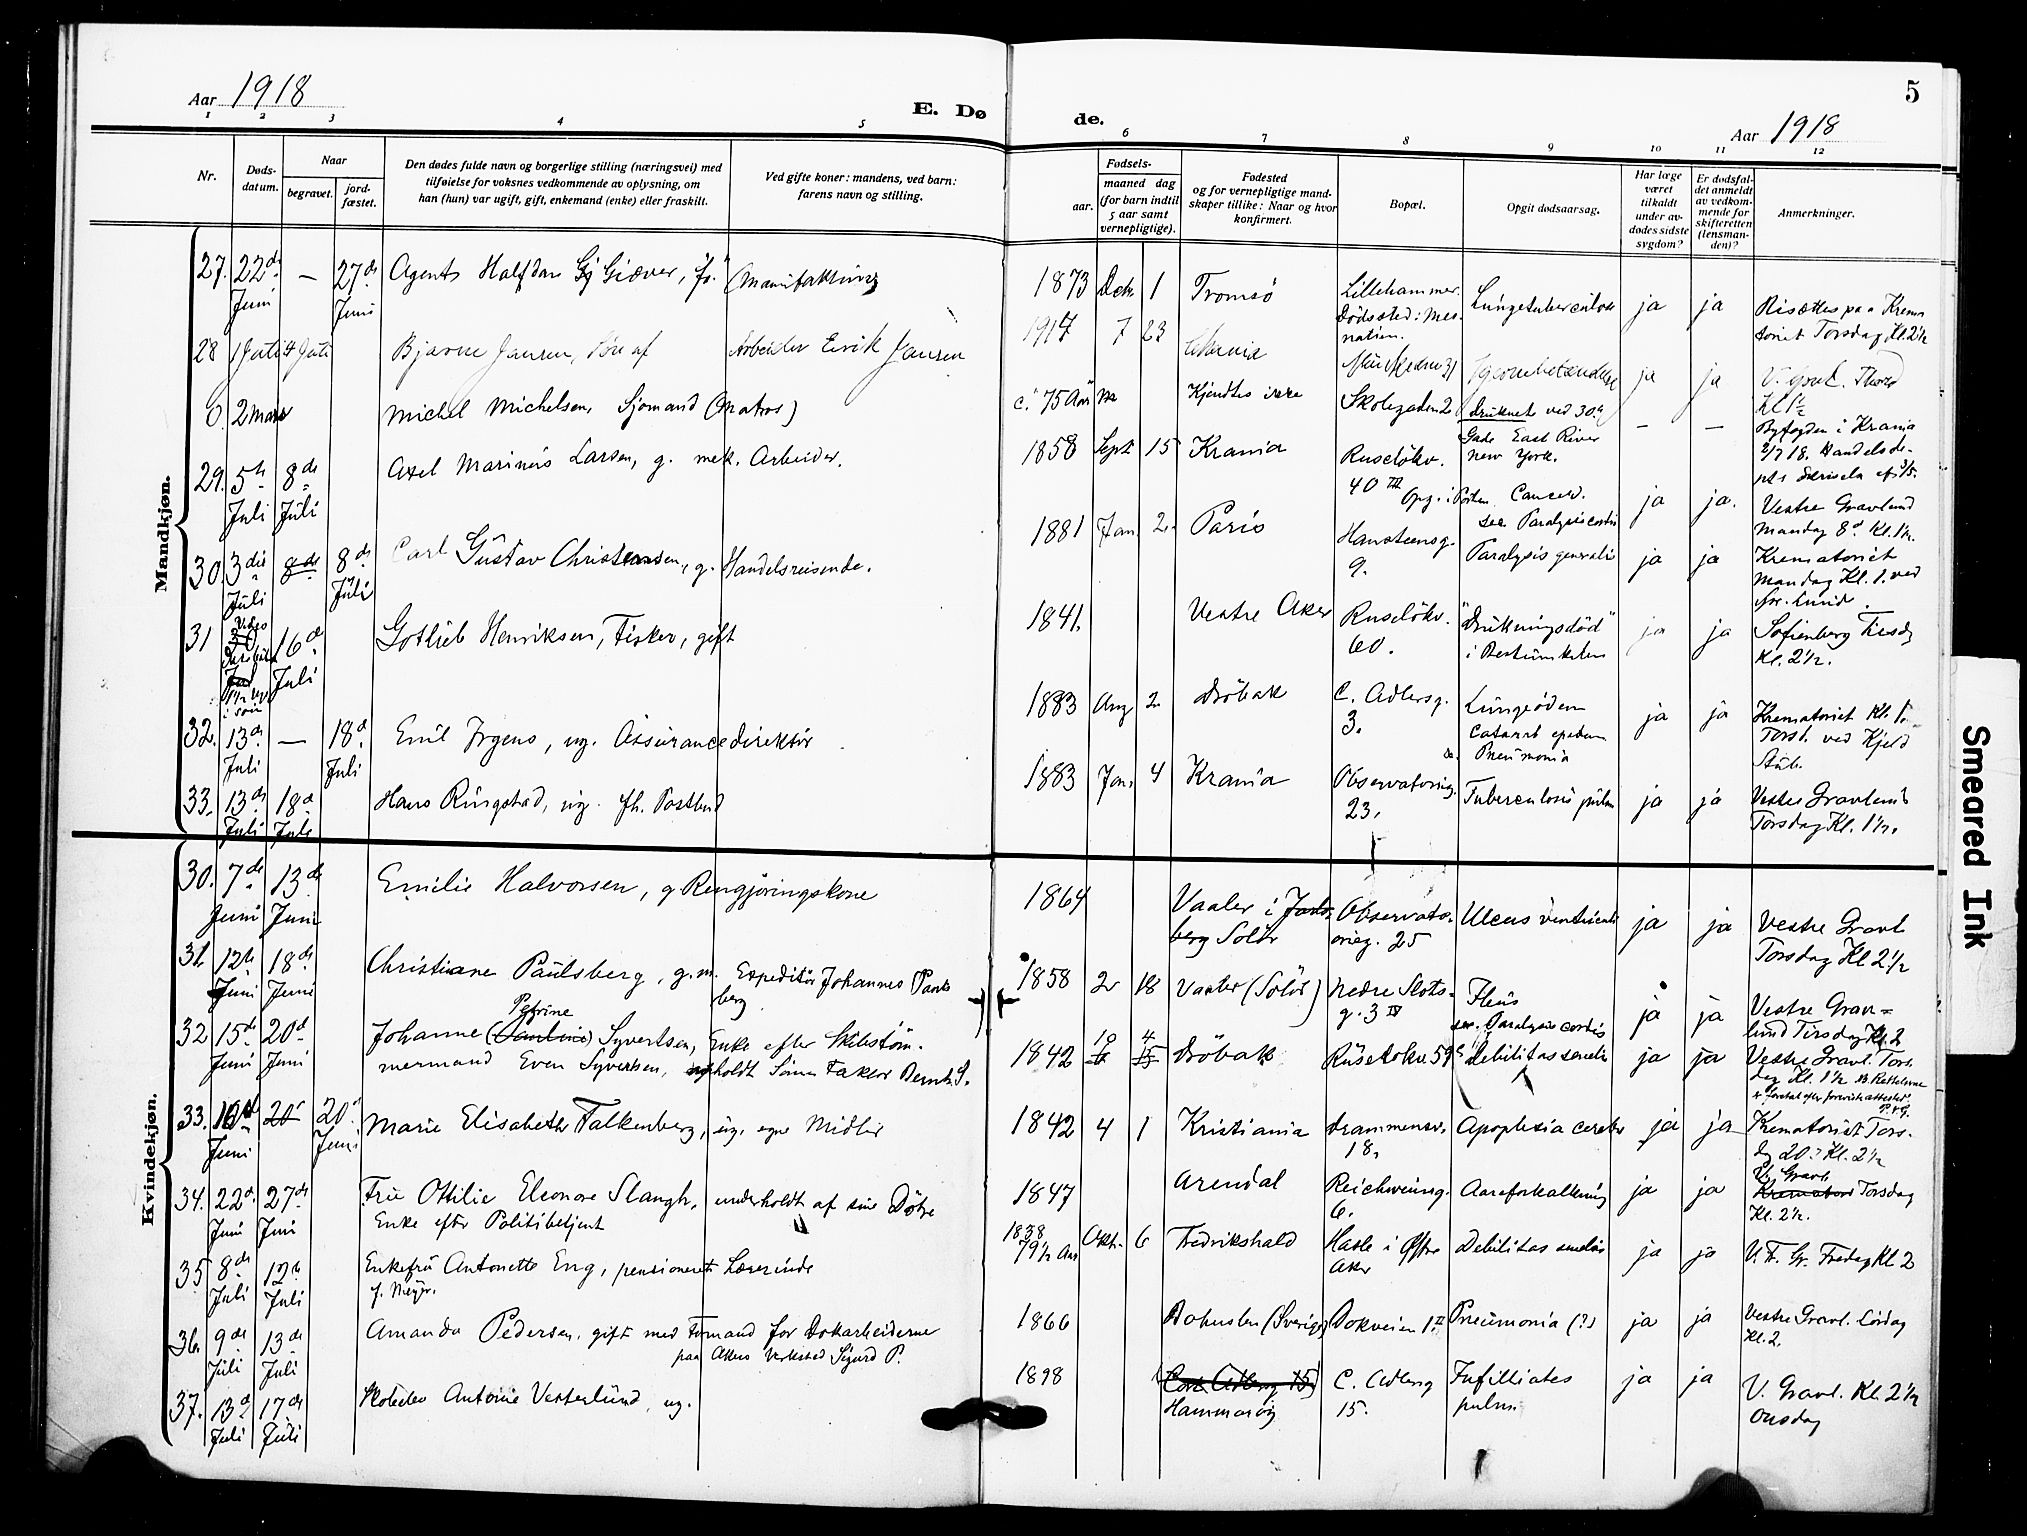 Aar 1918
E. Dø
de.
5
Aar 1918
1 2 3 4 5 6 7 8 9 10 11 12
Nr.
Døds-
datum.
Naar
begravet.
jord-
fæstet.
Den dødes fulde navn og borgerlige stilling (næringsvei) med
tilføielse for voksnes vedkommende av oplysning, om
han (hun) var ugift, gift, enkemand (enke) eller fraskilt.
Ved gifte koner: mandens, ved barn:
farens navn og stilling.
Fødsels-
aar.
maaned dag
(for barn indtil
5 aar samt
vernepligtige).
Fødested
og for vernepligtige mand-
skaper tillike: Naar og hvor
konfirmert.
Bopæl.
Opgit dødsaarsag.
Har læge
været
tilkaldt
under av-
dødes sidste
sygdom?
Er dødsfal-
det anmeldt
av vedkom-
mende for
skifteretten
(lensman-
den)?
Anmerkninger.
Mandkjøn.
27. 22de Juni — 27de Juni Agent Halfdan Giæver, 1873 Dec 1 Tromsö Lillehammer. Dödssted: Mes-
nalien. Lungetuberculose ja ja Torsdag Kl. 2½
28 1 Juli 4 Juli Bjarne Jansen, Sön af Arbeider Erik Jansen 1917 7 23 ja ja V. Gravl.
0. 2 Mars Michel Michelsen, Sjömand (Matros) c. 75 Aar Kjendtes ikke Skolegaden 2 Druknet ved 30. Gade East River New York. — — Byfogden i Krania
29. 5te Juli 8de Juli Axel Marinius Larsen, g. mek. Arbeider. 1858 Sept 15 Krania Ruselökv. 40 III Cancer. ja ja. Vestre Gravlund Mandag 8d Kl. 1½.
30. 3die Juli 8de 8de Juli Carl Gustav Christensen, g. Handelsreisende. 1881 Jan. 2. Paris Hansteensg. 9. Paralysis generalis ja ja Krematoriet Mandag Kl. 1. ved
31 16de Juli Gotlieb Henriksen, Fisker, gift 1841. Vestre Aker Ruselökv. 60. "Drukningsdöd" i Bestumkilen ja ja Sofienberg Tirsdag Kl. 2½.
32. 13de Juli — 18de Juli Emil Irgens, ug. Assurancedirektör 1883 Aug 2. Dröbak C. Adlersg. 3. Lungeödem Catarrh Pneumonia ja ja Krematoriet Kl. 1. Torsd. ved Kjeld Stub.
33. 13de Juli 18de Juli Hans Ringstad, ug. fh. Postbud 1883 Jan. 4 Krania Observatorieg. 23. Tuberculosis pulm ja ja Vestre Gravlund Torsdag Kl. 1½.
Kvindekjøn.
30. 7de Juni 13de Juni Emilie Halvorsen, g Rengjöringskone 1864 Vaaler i Solör Observato-
rieg. 25 Ulcus ventriculi ja ja Vestre Gravl Torsdag Kl 2½
31. 12te Juni 18de Juni Christiane Paulsberg, g.m. Expeditör Johannes Pauls
berg 1858 2 18 Vaaler (Solör) Nedre Slots-
g. 3 IV Ileus sec. Paralysis cordis ja ja Vestre Grav=
lund Tirsdag Kl. 2
32 15de Juni 20de Juni Johanne (Pauline) Petrine Syvertsen, Enke efter Skibstöm-
mermand Even Syvertsen, holdt Sönnen Faktor Bernt S. 1842 10 4 Dröbak Ruselökv. 59 Debilitas senilis ja ja Vestre Gravl. Tors-
dag Kl. 1½
33. 20de 20de Juni Marie Elisabeth Falkenberg, ug. egne Midler 1842 4 1 Kristiania Drammensv. 18. Apoplexia cerebri ja ja Krematoriet Tors-
dag 20de Kl. 2½
34. 22de Juni 27de Juni Fru Ottilie Eleonore Slangh, underholdt af sine Dötre
Enke efter Politibetjent 1847 Arendal Reichweinsg. 6. Aareforkalkning ja ja V. Gravl Krematoriet Torsdag Kl. 2½.
35 8de Juli 12te Juli Enkefru Antonette Eng, pensioneret Lærerinde
f. Meyer. 1838 79½ Aar Okt. 6 Fredrikshald Hasle i Østre Aker Debilitas senilis ja ja V. Gr. Fredag Kl 2
36. 9de Juli 13de Juli Amanda Pedersen, gift med Formand for Dokarbeiderne
paa Akers Verksted Sigurd P. 1866 Bohuslen (Sverige) Dokveien 1 II Pneumonia (?) ja ja Vestre Gravl. Lördag Kl. 2.
37. 13de Juli 17de Juli Antonie Vesterlund, ug. 1898 (Carl Adlersg 15) Hammarög C. Adlersg 15. pulm. ja ja V. Gravl. Kl. 2½ Onsdag
Smeared Ink